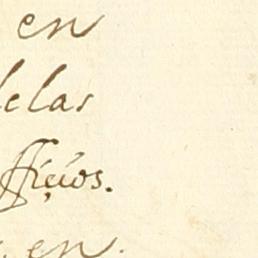 en
delas
fficios.
en